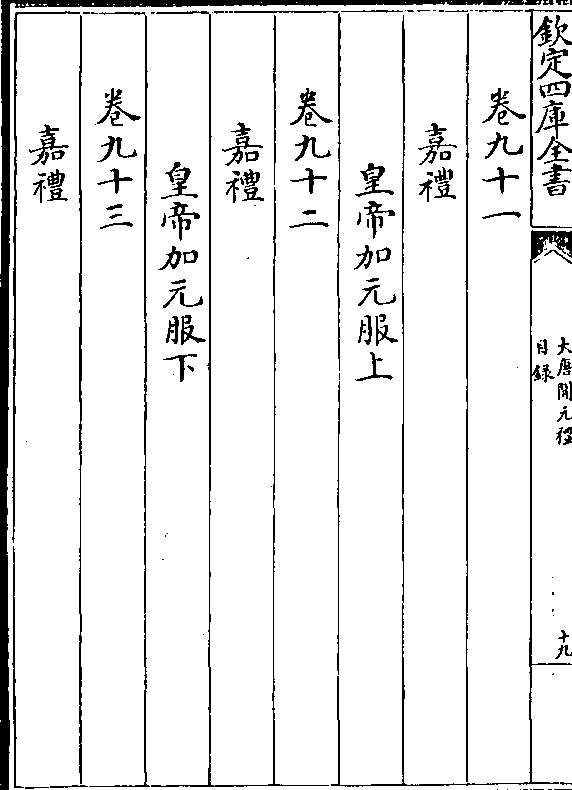 欽定四庫全書
大唐開元禮
目錄
十九
卷九十一
嘉禮
皇帝加元服上
卷九十二
嘉禮
皇帝加元服下
卷九十三
嘉禮